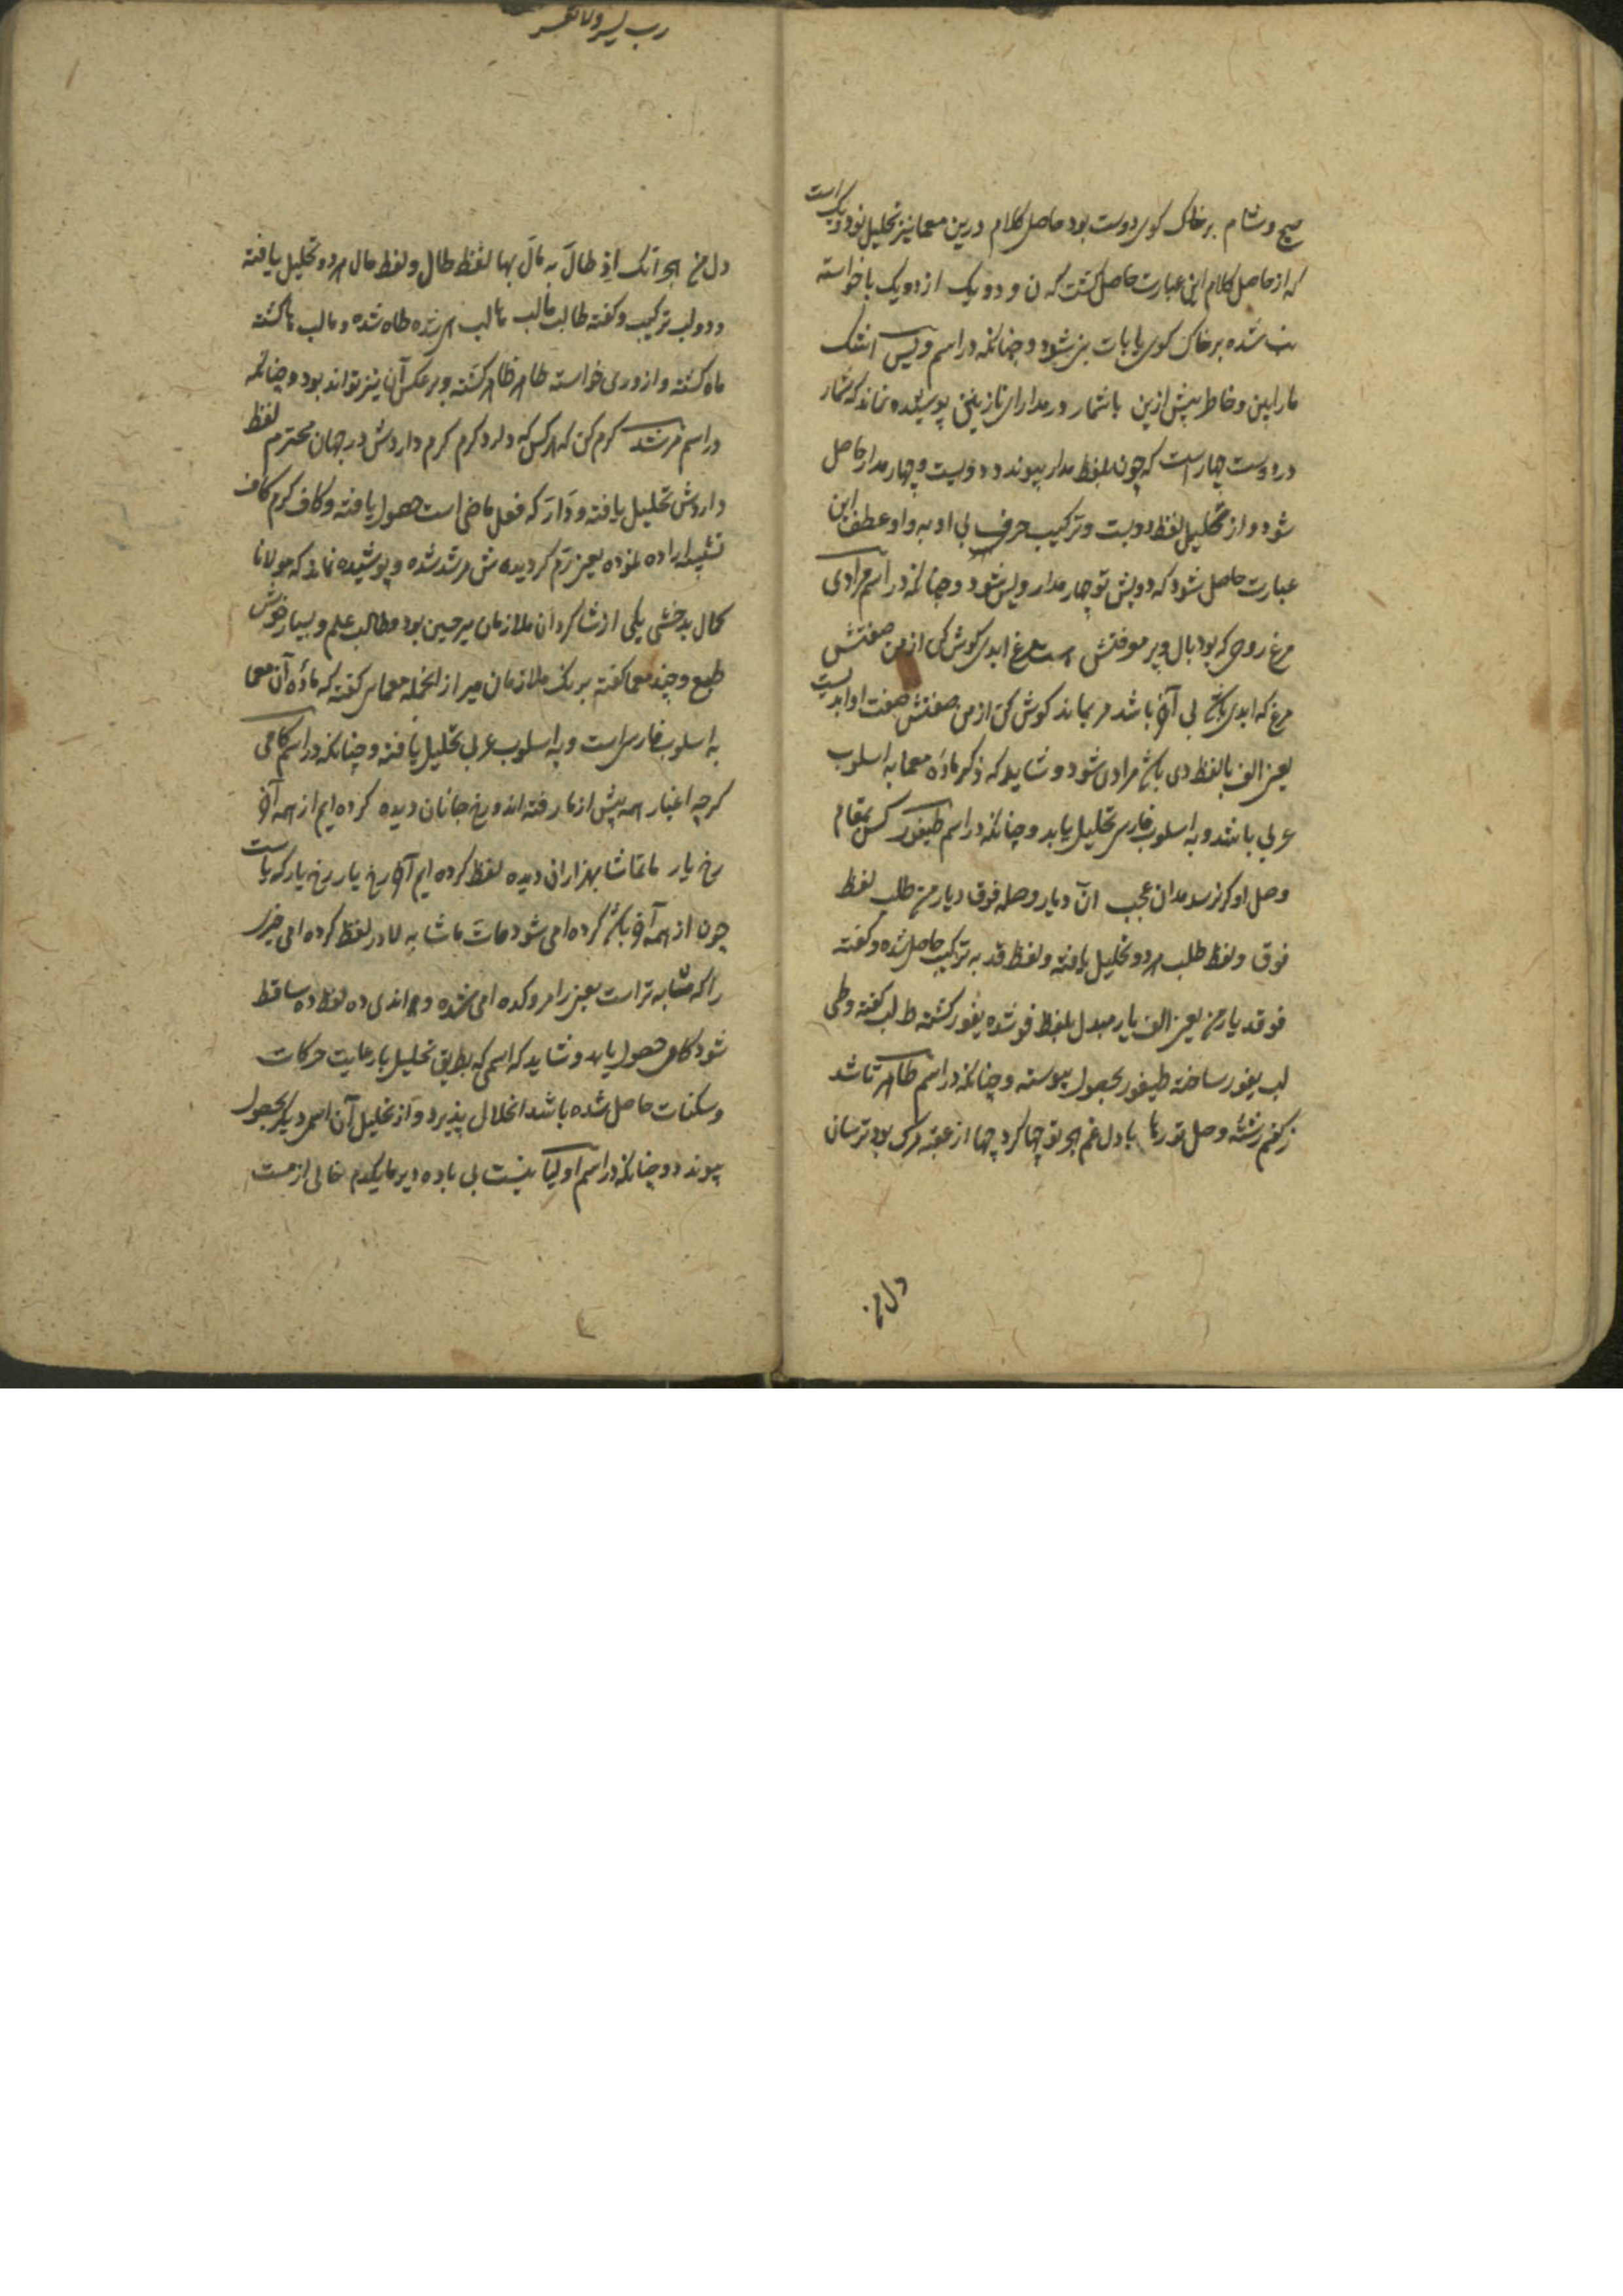 صبح و شام بر خاک کوی دوست بود حاصل کلام درین معما نیز تحلیل بود و یک است
که از حاصل کلام این عبارت حاصل گشت که ن و دو یک از دو یک با خواسته
شده بر خاک کوی یا بات شود و چنانکه در اسم ویس اشک
ما را بین و خاطر پیش ازین با شمار در مدارای نازنین پوشیده نماند که شمار
در دوست چهار است که چون بلفظ مدار پیوندد دویست و چهار مدار حاصل
شود و از تحلیل لفظ دویست و ترکیب حرف بی او به واو عطف این
عبارت حاصل شود که دویش تو چهار مدار ویس شود و چنانکه در اسم مرادی
مرغ روحی که بود بال و پر موفنش است مرغ ابدی گوش کن از من صفتش
مرغ که ابدی باشد بی آخر باشد مر بماند گوش کن از من صفتش صفت او ابدیست
یعنی الف با لفظ دی مرادی شود و شاید که ذکر ماده معما به اسلوب
عربی باشد و به اسلوب فارسی تحلیل یابد و چنانکه در اسم طیفور کس بمقام
وصل او گر نرسد مدان عجب آن دیار وصله فوق دیار من طلب لفظ
فوق و لفظ طلب هر دو تحلیل یافته و لفظ قد به ترکیب حاصل شده و گفته
فو قد یار من یعنی الف یار مبدل بلفظ فو شده یفور گشته ط لب گفته و طی
لب یفور ساخته طیفور بحصول پیوسته و چنانکه در اسم طاهر تا شد
ز کفم رشته وصل تو رها با دل غم هجر تو چها کرد چها از عقبه مرگ بود ترسان
دل من
رب یسر ولا تعسر
دل من هجر آنک اذ طال به مال بها لفظ طال و لفظ مال هر دو تحلیل یافته
و دو لب ترکیب و گفته طا لب ما لب تا لب هر شده طاه شده و ما لب ما گشته
ماه گشته و از وری خواسته طاهر ظاهر گشته و بر عکس آن نیز تواند بود و چنانکه
در اسم مرشد کرم کن که هر کس که دارد کرم کرم داردش در جهان محترم لفظ
داردش تحلیل یافته و دار که فعل ماضی است حصول یافته و کاف کرم کاف
تشبیه اراده نموده یعنی رم گردیده ش مرشد شده و پوشیده نماند که مولانا
کمال بدخشی یکی از شاگردان ملازمان میر حسین بود و طالب علم و بسیار خوش
طبع و چند معما گفته بر رنگ ملازمان میر از انجمله معمایی گفته که ماده آن معما
به اسلوب فارسی است و به اسلوب عربی تحلیل یافته و چنانکه در اسم کامی
گرچه اغیار همه پیش از ما رفته اند و رخ جانان دیده کرده ایم از همه آخر
رخ یار ما تماشا بهزاران دیده لفظ کرده ایم آخر رخ یار رخ یار که یاست
چون از همه آخر باشد کرده امی شود مات ما شا به لا در لفظ کرده امی چیزی
را که مشابه تر است یعنی را مر و کده امی شده و هزاندی ده لفظ ده ساقط
شود کامی حصول یابد و شاید که اسمی که بطریق تحلیل با رعایت حرکات
و سکنات حاصل شده باشد انحلال پذیرد و از تحلیل آن اسمی دیگر بحصول
پیوندد و چنانکه در اسم اولیا نیست بی باده دیر ما یکدم خالی از مست